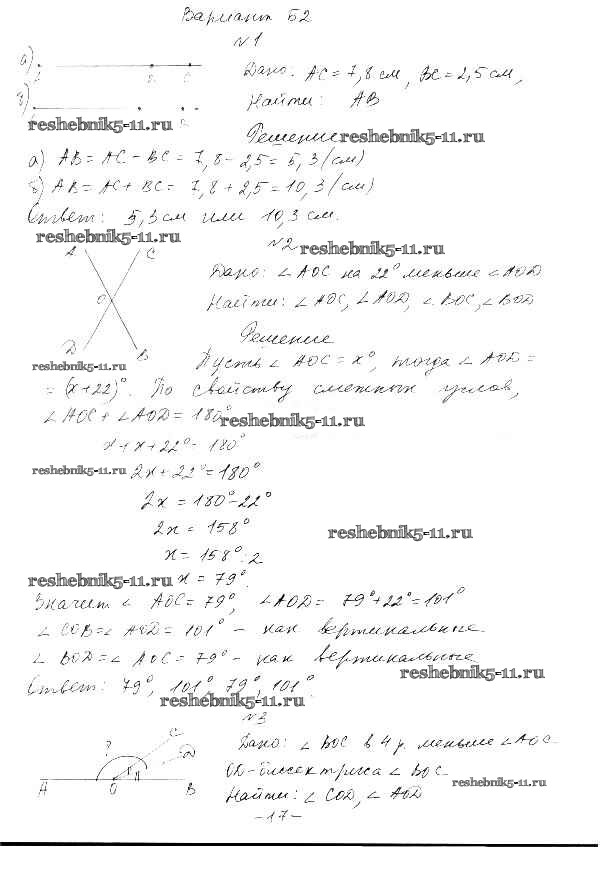 Вариант Б2
№1
а)
Дано: AC = 7,8 см, BC = 2,5 см,
б)
Найти: AB
reshebnik5-11.ru
Решение reshebnik5-11.ru
а) AB = AC - BC = 7,8 - 2,5 = 5,3 (см)
б) AB = AC + BC = 7,8 + 2,5 = 10,3 (см)
Ответ: 5,3 см или 10,3 см.
reshebnik5-11.ru
№2 reshebnik5-11.ru
A C
Дано: ∠AOC на 22° меньше ∠AOD
O
Найти: ∠AOC, ∠AOD, ∠BOC, ∠BOD
Решение
D B
reshebnik5-11.ru Пусть ∠AOC = x°, тогда ∠AOD =
= (x+22)°. По свойству смежных углов,
∠AOC + ∠AOD = 180° reshebnik5-11.ru
x + x + 22° = 180°
reshebnik5-11.ru 2x + 22° = 180°
2x = 180° - 22°
2x = 158°
reshebnik5-11.ru
x = 158° : 2
reshebnik5-11.ru x = 79°
Значит ∠AOC = 79°, ∠AOD = 79° + 22° = 101°
∠COB = ∠AOD = 101° - как вертикальные.
∠BOD = ∠AOC = 79° - как вертикальные
reshebnik5-11.ru
Ответ: 79°, 101°, 79°, 101°.
reshebnik5-11.ru
№3
C
Дано: ∠BOC в 4 р. меньше ∠AOC
? D
OD - биссектриса ∠BOC.
reshebnik5-11.ru
A O B
Найти: ∠COD, ∠AOD
-17-